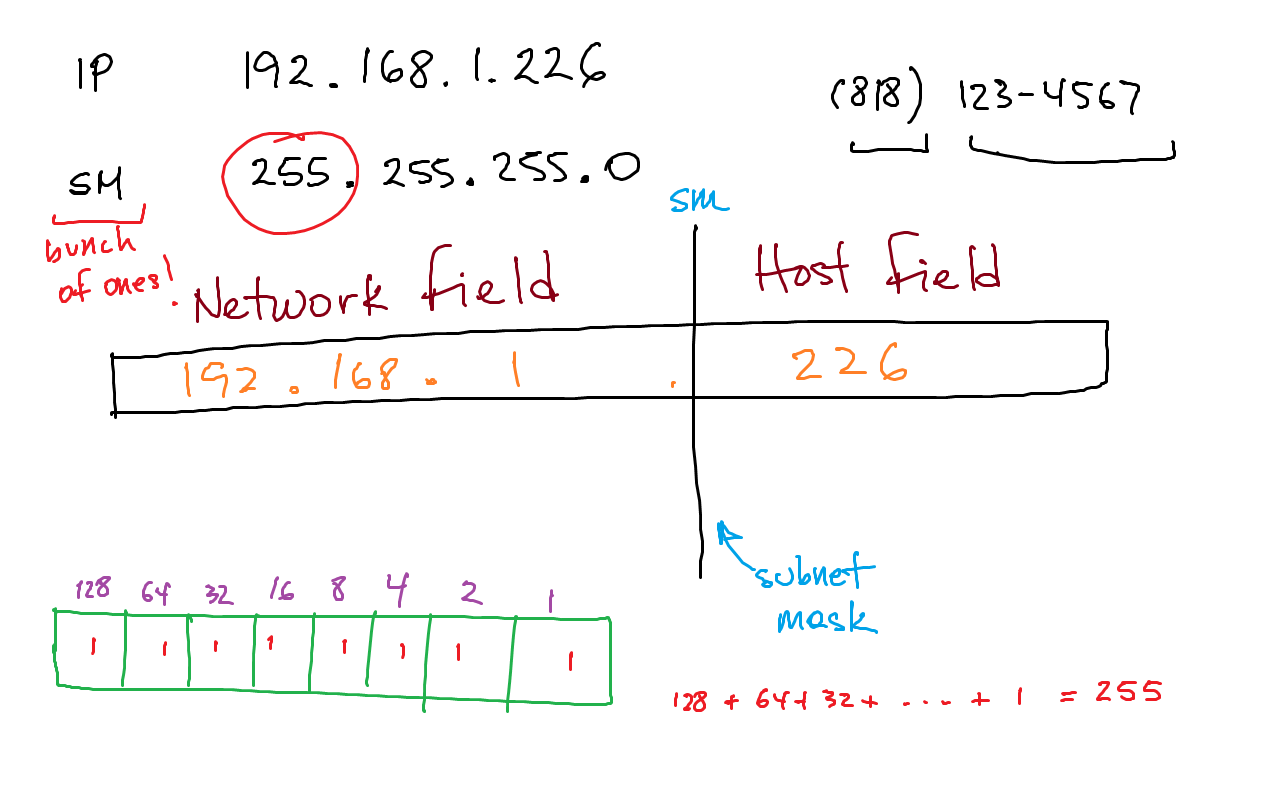 IP 192.168.1.226
(818) 123-4567
SM 255.255.255.0
bunch
of ones!
sm
Network field Host field
192.168.1.226
subnet
mask
128 64 32 16 8 4 2 1
1 1 1 1 1 1 1 1
128 + 64 + 32 + .... + 1 = 255